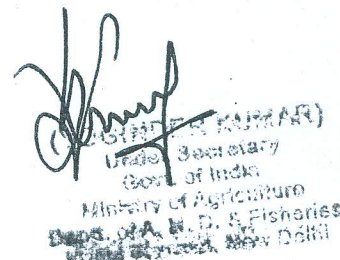 KUMAR)
Under Secretary
Govt. of India
Ministry of Agriculture
Deptt. of A. H. D. & Fisheries
New Delhi